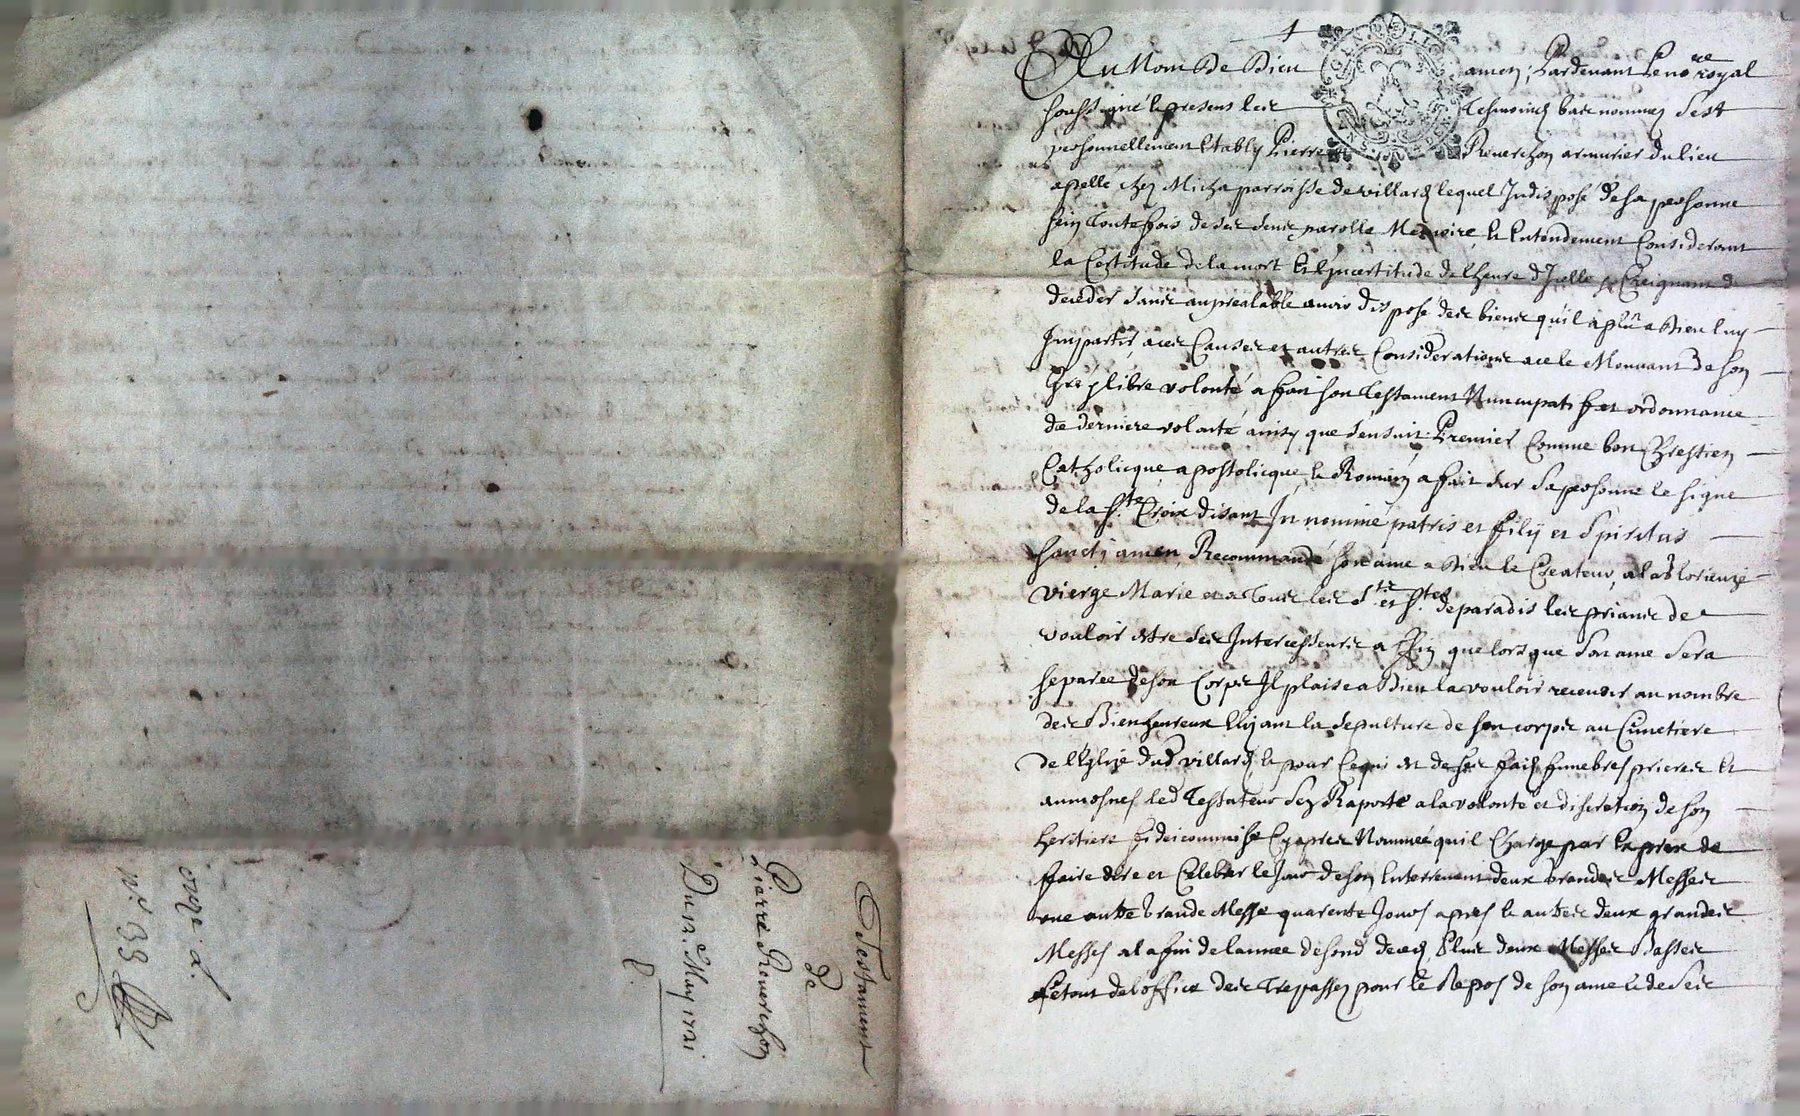 Testament
de
Pierre Reverchon
Du 12. May 1721
onze
n.o 93
1
Au Nom De Dieu amen, Pardevant Le no.re royal
soussigné & presens les Tesmoins bas nommez S'est
personnellement Estably Pierre Reverchon armurier du lieu
apellé chez Micha parroisse de villard lequel Indisposé de sa personne
sein Toutefois de ses sens parolle Memoire & Entendement Considerant
la Certitude de la mort Et l'Incertitude de l'heure d'Icelle & Creignant de
deceder sans au prealable avoir disposé des biens qu'il a plû a Dieu luy
Impartir, a ces Causes et autres Considerations a ce le Mouvant de son
gré & libre volonté a fait son Testament Nuncupatif et ordonnance
de derniere volonté ainsy que s'ensuit Premier Comme bon Chrestien
Catholicque, apostolicque, & Romain a fait sur sa personne le signe
de la S.te Croix disant In nomine patris et filij et Spiritus
Sancti amen, Recommandé son ame a Dieu le Createur, a la Glorieuze
Vierge Marie et a Tous les S.ts et S.tes de paradis les priants de
vouloir estre ses Intercesseurs a fin que lorsque son ame sera
separée de son Corps Il plaise a Dieu la vouloir recevoir au nombre
des Bienheureux Elizant la sepulture de son corps au Cimetiere
de l'Eglize dud villard, & pour Ce qui est de ses fais funebres prieres &
aumosnes led Testateur s'en Raporte a la volonté et discretion de son
heritiere fideicommise Cy apres Nommée qu'il Charge par Exprex de
faire dire et Celebrer le Jour de son Enterrement deux Grandes Messes
une autre Grande Messe quarente Jours apres & autres deux grandes
Messes a la fin de l'année de sond deced, Plus deux Messes Basses
Le tout de l'office des Trepassez pour le Repos de son ame & de Ses